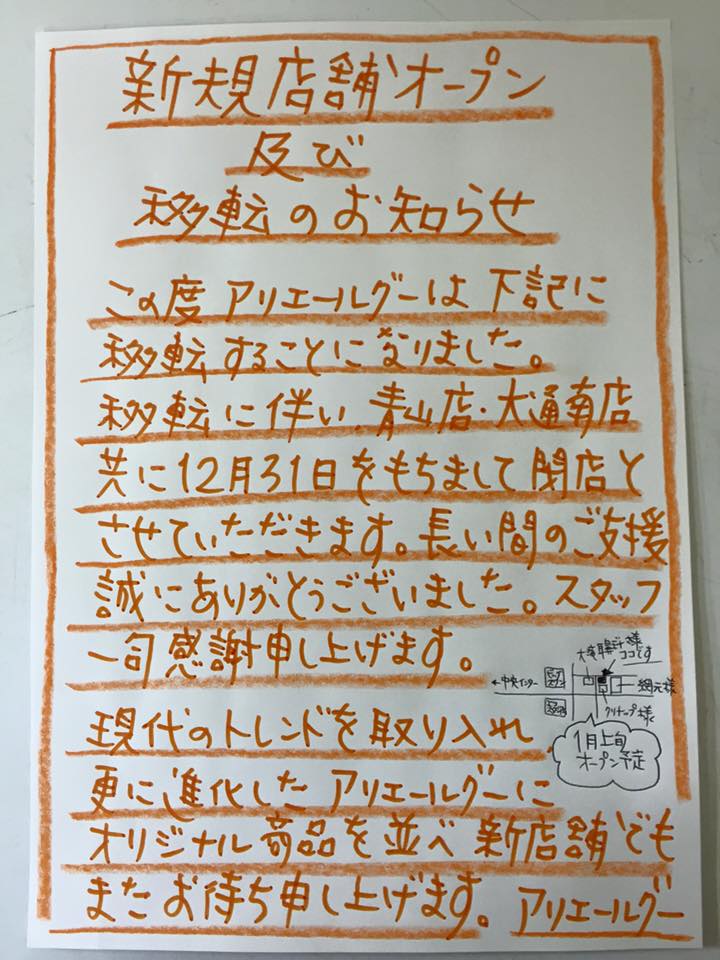 新規店舗オープン
及び
移転のお知らせ
この度 アリエールグーは 下記に
移転することになりました。
移転に伴い、青山店・大通南店
共に12月31日をもちまして閉店と
させていただきます。長い間のご支援
誠にありがとうございました。スタッフ
一同感謝申し上げます。
様
ココです
←中央インター
網元様
クリナップ様
1月上旬
オープン予定
現代のトレンドを取り入れ
更に進化したアリエールグーに
オリジナル商品を並べ 新店舗でも
またお待ち申し上げます。アリエールグー